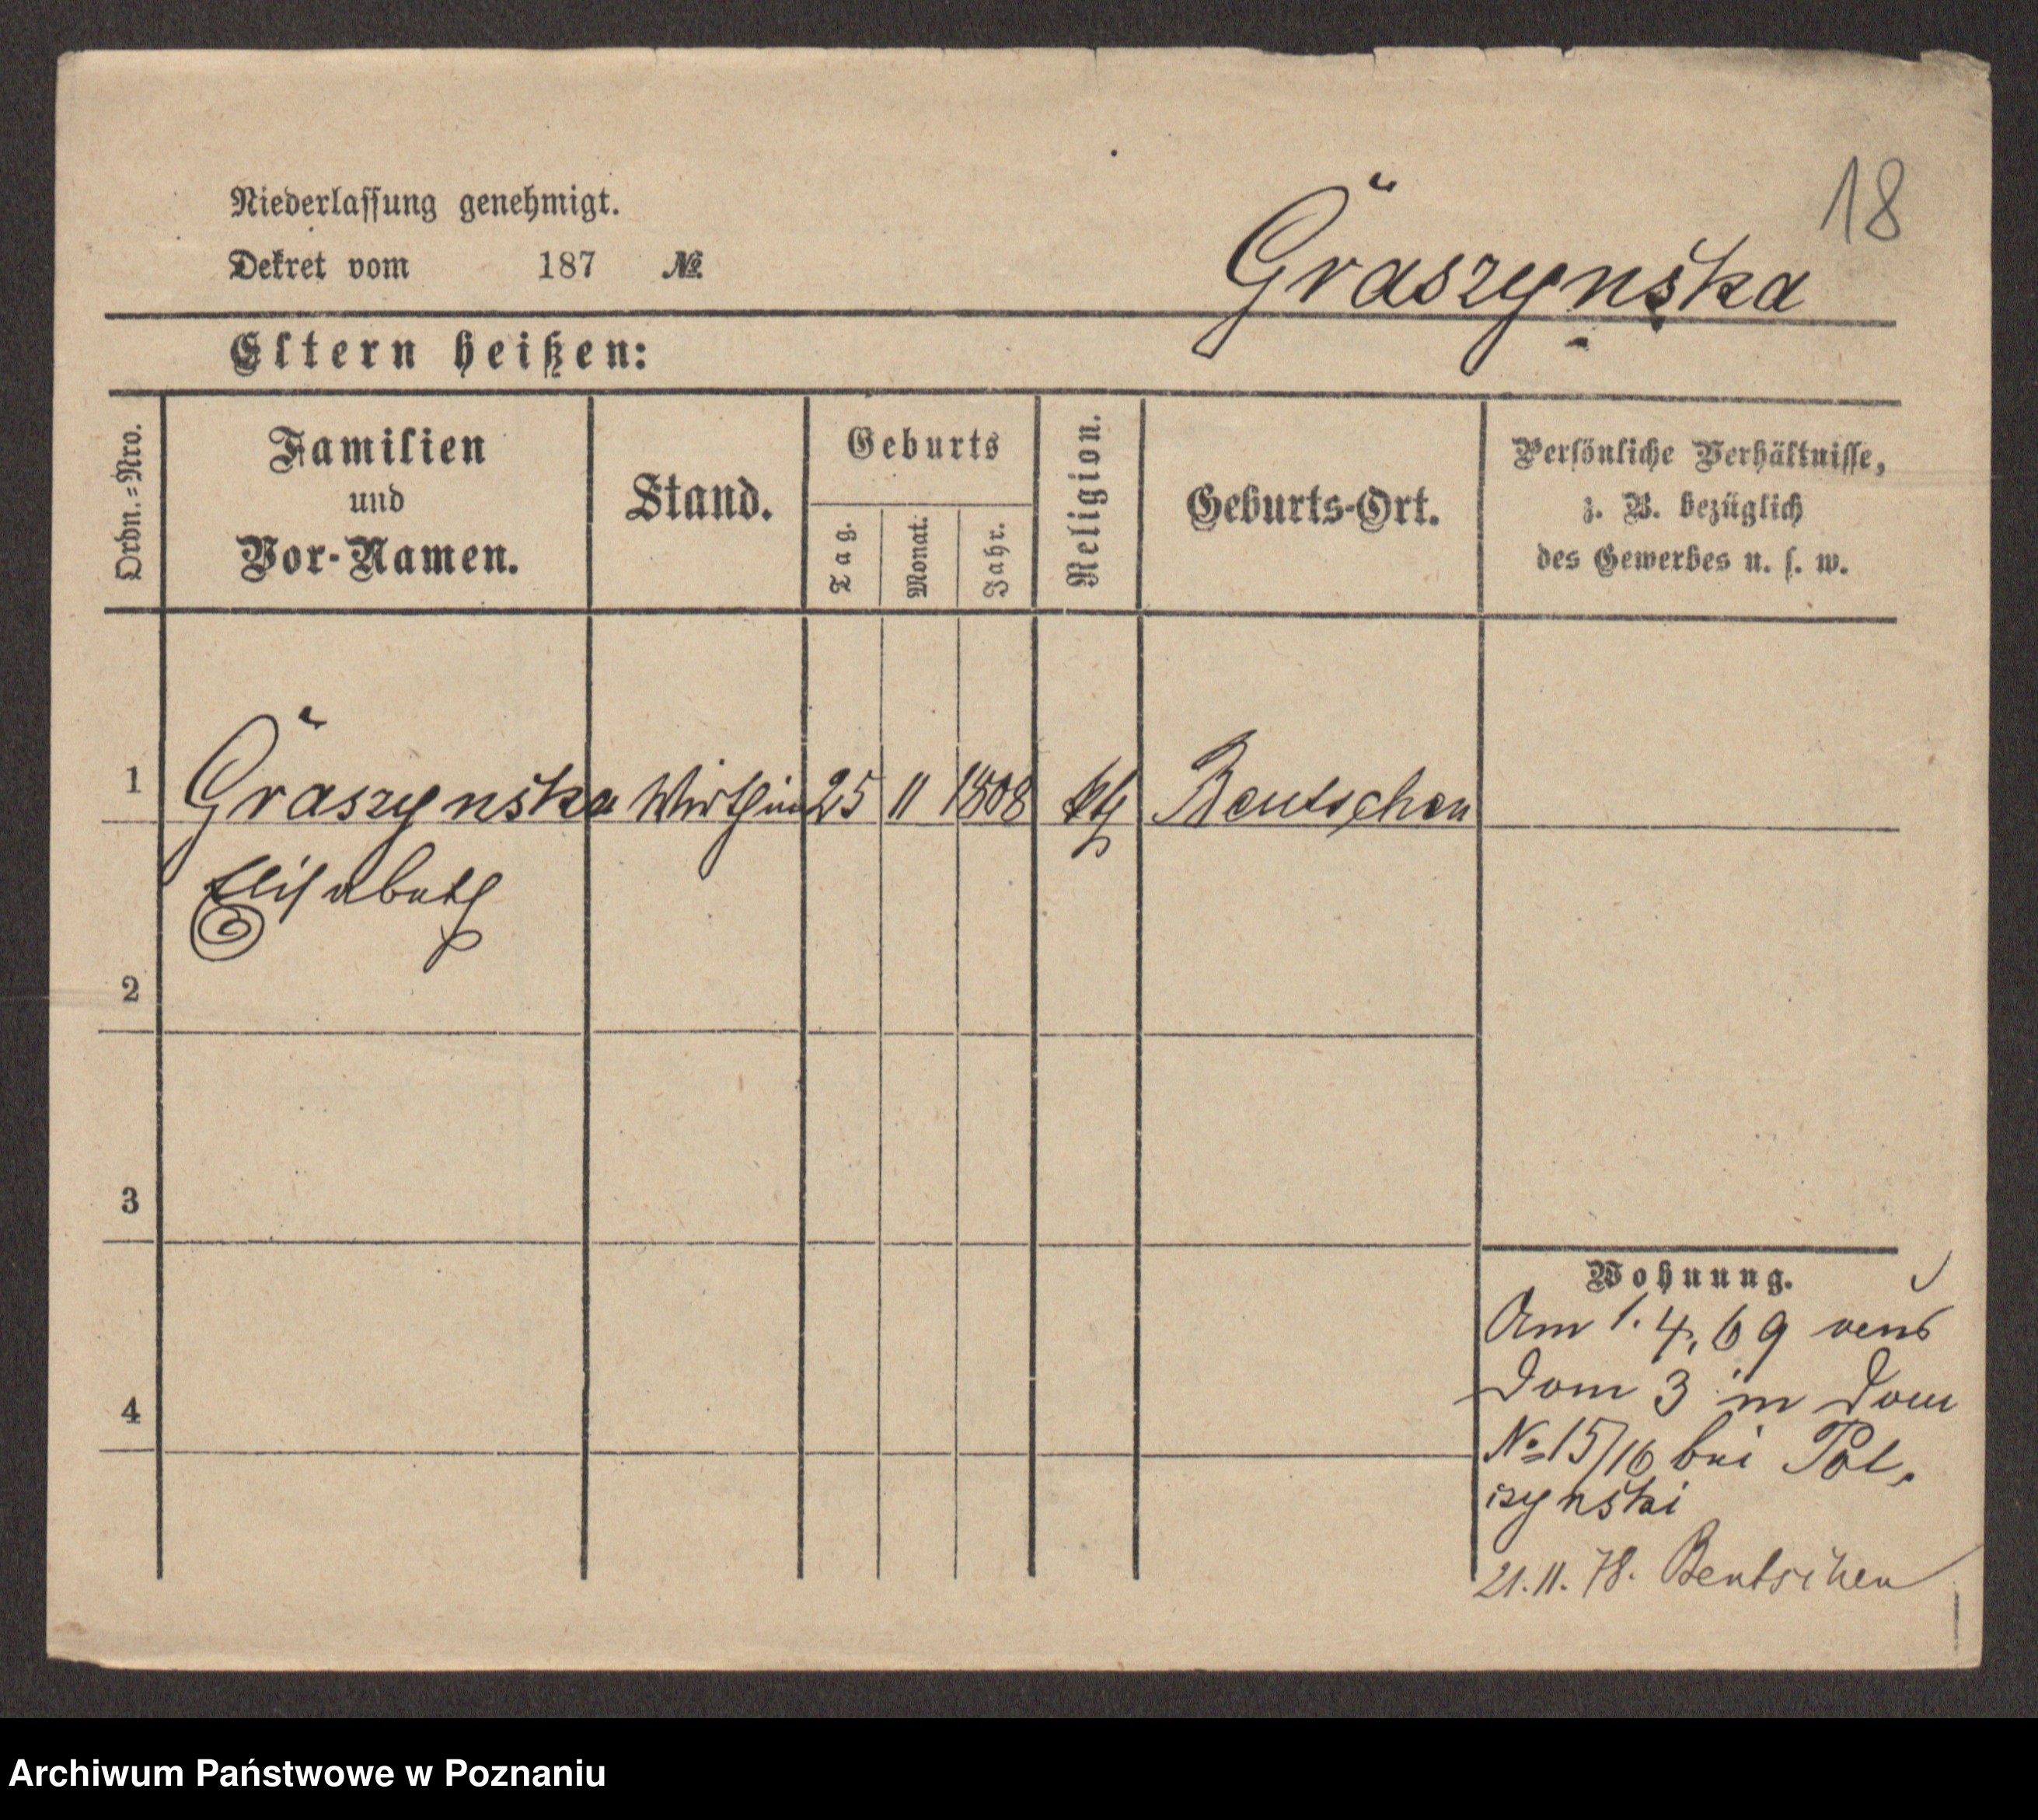 18
Niederlassung genehmigt.
Dekret vom 187 №
Graszynska
Eltern heißen:
Ordn.=Nro.
Familien
und
Vor-Namen.
Stand.
Geburts
Tag.
Monat.
Jahr.
Religion.
Geburts-Ort.
Persönliche Verhältnisse,
z. B. bezüglich
des Gewerbes u. s. w.
1 Graszynska Wirthin 25 11 1808 kth Bentschen
Elisabeth
2
3
4
Wohnung.
Am 1. 4, 69 von
Dom 3 in Dom
№ 15/16 bei Pol,
szynski
21. 11. 78. Bentschen
Archiwum Państwowe w Poznaniu